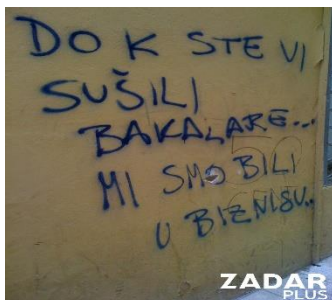 DOK STE VI
SUŠILI
BAKALARE...
MI SMO BILI
U BIZNISU..
ZADAR
PLUS